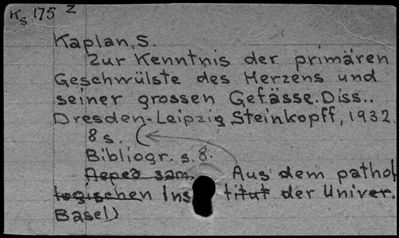 Ks 175 z
Kaplan, S.
Zur Kenntnis der primären
Geschwülste des Herzens und
seiner grossen Gefässe. Diss..
Dresden-Leipzig, Steinkopff, 1932.
8 s. (
Bibliogr. s. 8.
Aus dem pathol
logischen Institut der Univer.
Basel)